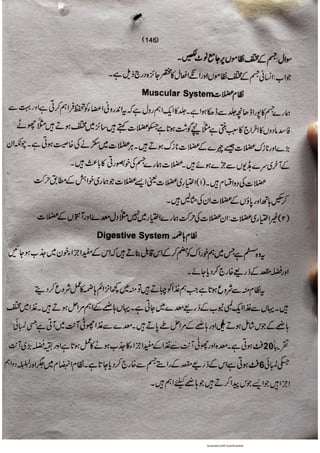 (146)
سوال: جسم کے مختلف نظاموں پر جامع نوٹ لکھیں۔
جواب: انسانی جسم کے مختلف نظاموں اور انکے افعال کا مختصر جائزہ درج ذیل ہے۔
نظام عضلات Muscular System
ہمارے جسم کا پورا ڈھانچہ جلد سے ڈھکا ہوا ہے۔ جلد کا ایک اہم رول ہے کہ یہ اندرونی اعضاء کو تحفظ فراہم کرتی ہے اور بہت سے
فاسد مادوں کا اخراج کا سبب بنتی ہے مثلاً نیچے گوشت ہوتا ہے جسکو عضلات کہتے ہیں سائز میں مختلف ہوتے ہیں مثلاً چھوٹے
بڑے اور نازک عضلات جیسے چہرے کے عضلات نازک ہوتے ہیں۔ ہر عضلات میں سکڑنے کی خاصیت ہوتی ہے۔ چونکہ ان
کے آخری سرے ہڈیوں سے جڑے ہوئے ہیں۔ عضلات ہمارے جسم کی خوبصورتی کا باعث ہیں۔
عضلات کی دو اقسام ہیں۔ (۱) اختیاری عضلات یعنی ایسے عضلات جو ہماری خواہش کے مطابق حرکت
کر سکیں ہاتھ اور پاؤں کے عضلات ان کی مثالیں ہیں۔
(۲) غیر اختیاری عضلات: ان عضلات کی حرکت ہمارے اختیار میں نہیں مثلاً دل معدے اور آنتوں کے عضلات
نظام ہاضمہ Digestive System
یہ وہ سسٹم ہے جس میں ہم خوراک کو ہضم کر کے اس قابل بناتے ہیں کہ اس کے مفید اجزاء خون میں جذب ہو جائیں
اور فضلہ مقعد کے ذریعے خارج کر دیا جائے۔
یہ نظام منہ سے شروع ہوتا ہے جب ہم غذا کو چباتے ہیں تو منہ میں کچھ انزائم ہاضمہ کا عمل شروع کر دیتے
ہیں۔ یہاں سے غذا ایک لمبی ٹیوب کے ذریعے معدے میں جاتی ہے۔ یہاں ہاضمے کے اہم مراحل ہوتے ہیں۔ غذا میں مختلف
ہاضمے کے جوس شامل ہوتے ہیں اور ہاضمے کے مراحل طے پاتے ہیں۔ معدے سے غذا چھوٹی آنت میں آتی ہے جس کی لمبائی
تقریباً 20 فٹ ہوتی ہے۔ معدہ اور چھوٹی آنت سے غذا کے مفید اجزاء کا جذب ہونے کا عمل ہوتا ہے اور بقیہ فضلہ بڑی آنت
جسکی لمبائی 6 فٹ ہوتی ہے اس کے ذریعے مقعد کے راستے جسم سے خارج کر دیا جاتا ہے۔ نظام انہضام میں جگر اور لبلبہ دو اہم
اجزاء ہیں جو ایسے جوس پیدا کرتے ہیں جو ہاضمے کیلئے اہم ہیں۔
Scanned with CamScanner